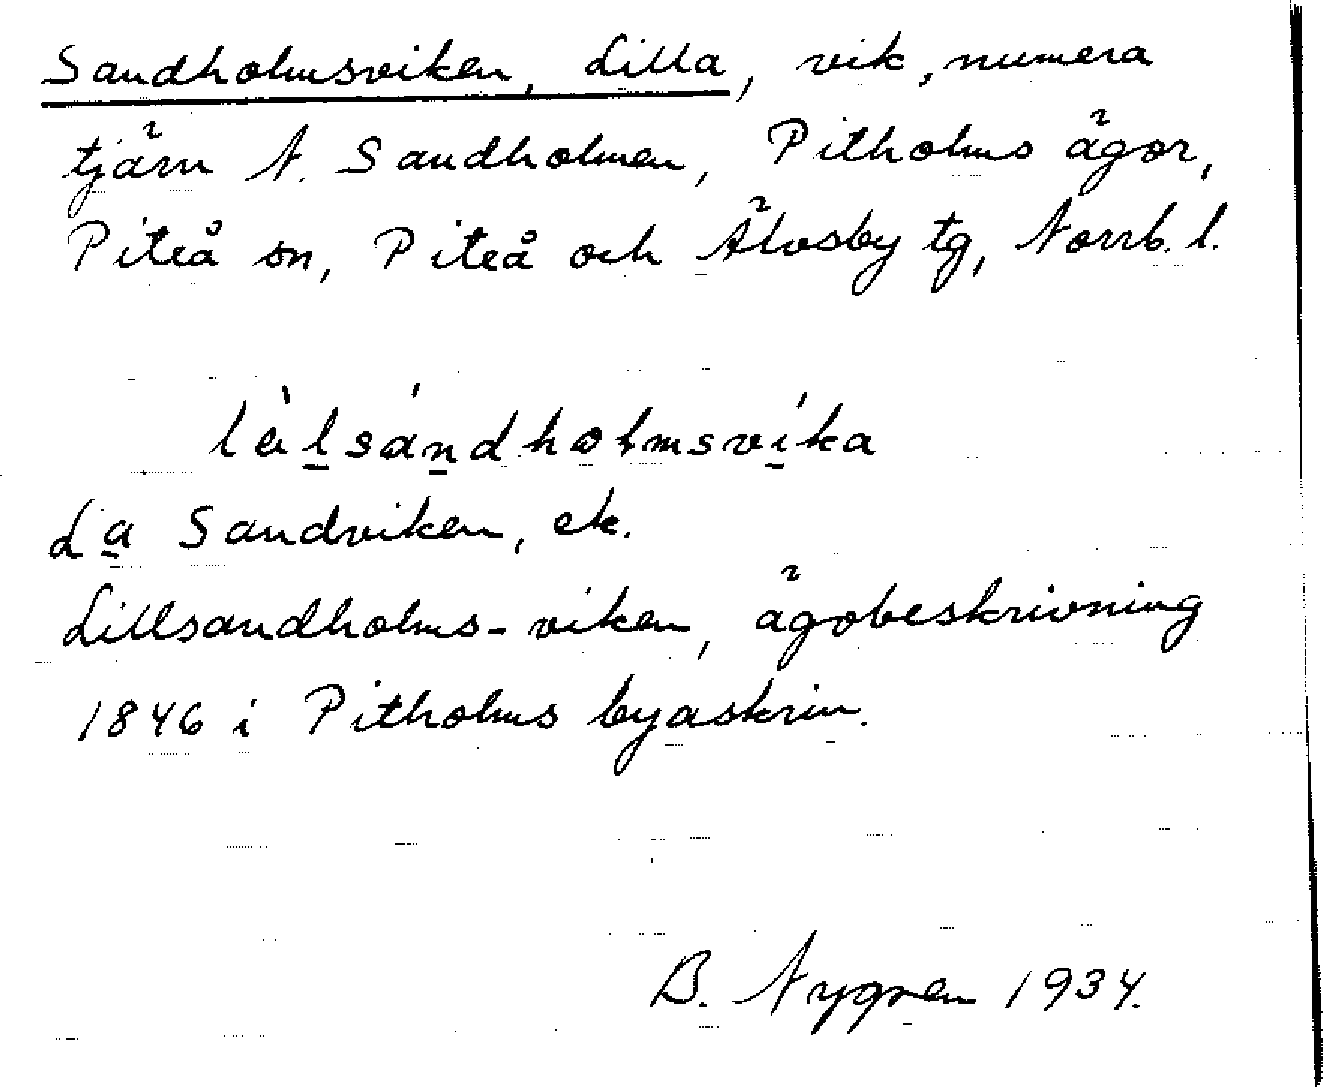 Sandholmsviken, Lilla, vik, numera
tjärn N. Sandholmen, Pitholms ägor,
Piteå sn, Piteå och Älvsby tg, Norrb. l.
lèlsándholmsvíka
La Sandviken, ek.
Lillsandholms-viken, ägobeskrivning
1846 i Pitholms byaskrin.
B. Nygren 1934.